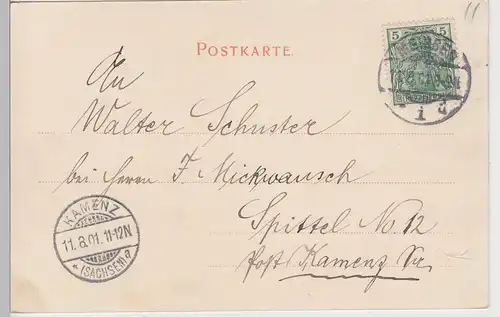 POSTKARTE.
5 5
An
Walter Schuster
bei Herrn F. Mickwausch
Spittel No. 12
Post Kamenz Sa.
KAMENZ
11.8.01.11-12N
* (SACHSEN) a